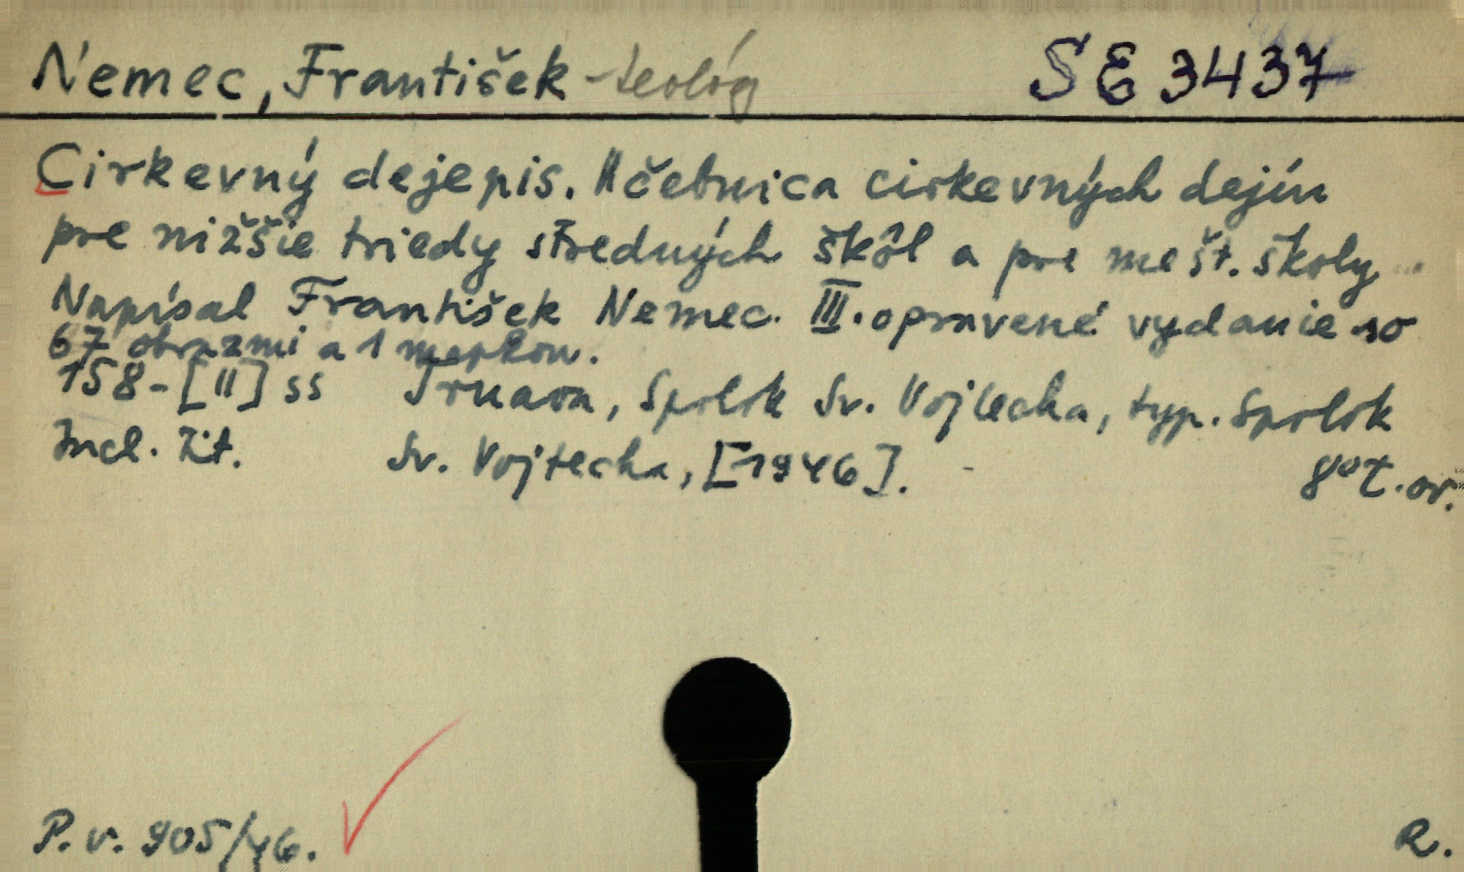 Nemec, František - teológ SE 3437
Cirkevný dejepis. Učebnica cirkevných dejín
pre nižšie triedy stredných škôl a pre mešt. školy
Napísal František Nemec. III. opravené vydanie so
67 obrazmi a 1 mapkou.
158-[II] ss Trnava, Spolok Sv. Vojtecha, typ. Spolok
Incl. tit. Sv. Vojtecha, [1946]. 8° t. or.
P. v. 905/46. R.